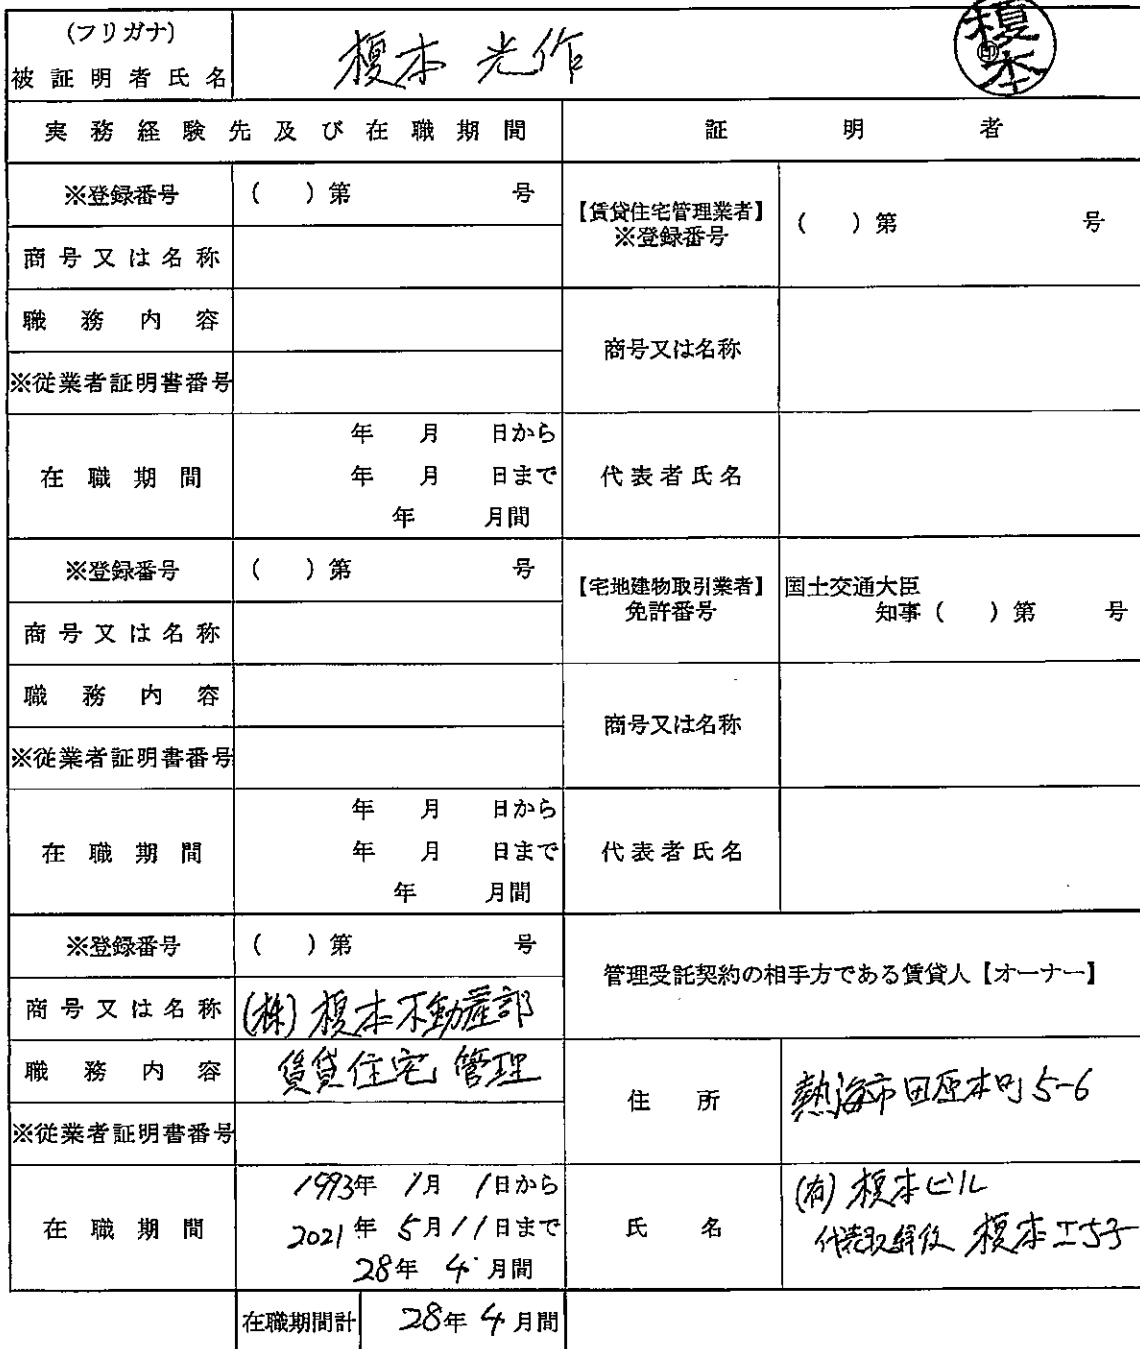 (フリガナ)
被証明者氏名
榎本 光作
榎本
印
実務経験先及び在職期間
証明者
※登録番号 ( ) 第 号
【賃貸住宅管理業者】
※登録番号
( ) 第 号
商号又は名称
職務内容
商号又は名称
※従業者証明書番号
年 月 日から
在職期間 年 月 日まで
年 月間
代表者氏名
※登録番号 ( ) 第 号
【宅地建物取引業者】
免許番号
国土交通大臣
知事 ( ) 第 号
商号又は名称
職務内容
商号又は名称
※従業者証明書番号
年 月 日から
在職期間 年 月 日まで
年 月間
代表者氏名
※登録番号 ( ) 第 号
管理受託契約の相手方である賃貸人【オーナー】
商号又は名称 (株)榎本不動産部
職務内容 賃貸住宅管理
住所 熱海市田原本町5-6
※従業者証明書番号
1993年 1月 1日から
在職期間 2021年 5月11日まで
28年 4月間
氏名
(有)榎本ビル
代表取締役 榎本
在職期間計 28年4月間